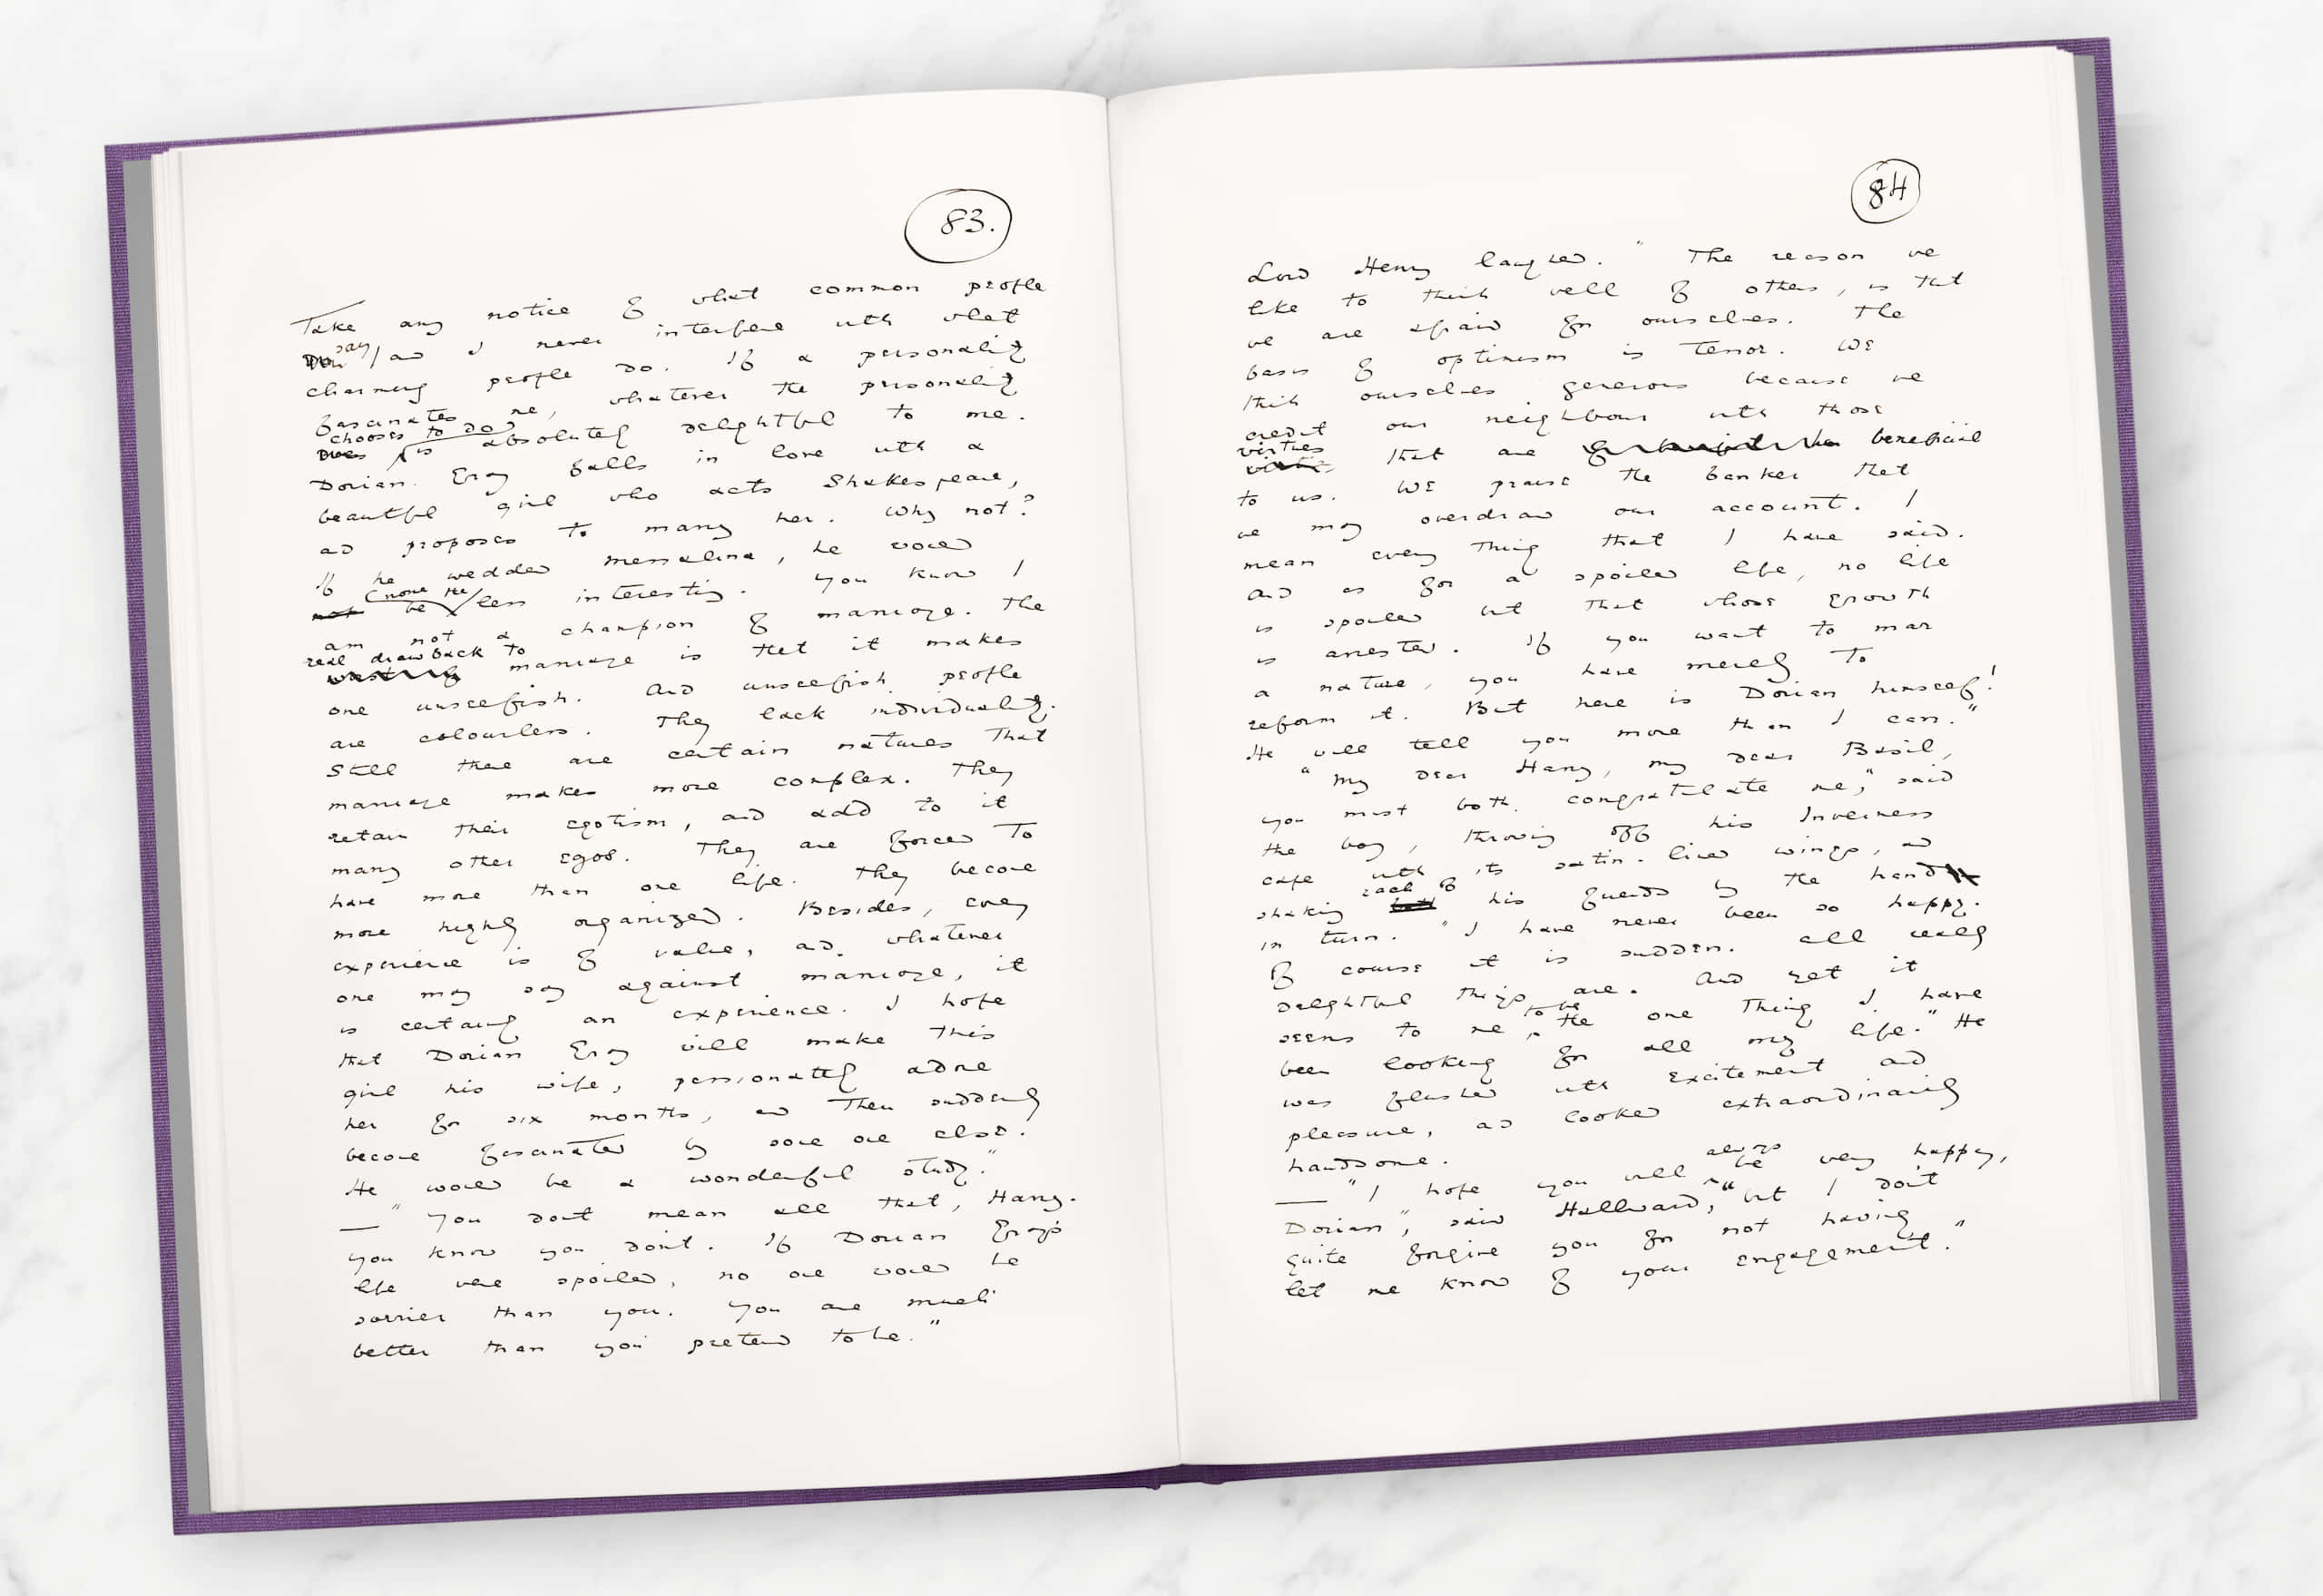 83.
Take any notice of what common people
say, and I never interfere with what
charming people do. If a personality
fascinates me, whatever the personality
chooses to do
is absolutely delightful to me.
Dorian Gray falls in love with a
beautiful girl who acts Shakespeare,
and proposes to marry her. Why not?
If he wedded Messalina, he would
none the
not be less interesting. You know I
am not a champion of marriage. The
real drawback to
marriage is that it makes
one unselfish. And unselfish people
are colourless. They lack individuality.
Still there are certain natures that
marriage makes more complex. They
retain their egotism, and add to it
many other egos. They are forced to
have more than one life. They become
more highly organized. Besides, every
experience is of value, and, whatever
one may say against marriage, it
is certainly an experience. I hope
that Dorian Gray will make this
girl his wife, passionately adore
her for six months, and then suddenly
become fascinated by some one else.
He would be a wonderful study."
— "You don't mean all that, Harry.
you know you don't. If Dorian Gray's
life were spoiled, no one would be
sorrier than you. You are much
better than you pretend to be."
84
Lord Henry laughed. "The reason we
like to think well of others, is that
we are afraid for ourselves. The
basis of optimism is terror. We
think ourselves generous because we
credit our neighbour with those
virtues
that are beneficial
to us. We praise the banker that
we may overdraw our account. I
mean every thing that I have said.
And as for a spoiled life, no life
is spoiled but that whose growth
is arrested. If you want to mar
a nature, you have merely to
reform it. But here is Dorian himself!
He will tell you more than I can."
"My dear Harry, my dear Basil,
you must both congratulate me," said
the boy, throwing off his Inverness
cape with its satin-lined wings, and
each of
shaking both his friends by the hand
in turn. "I have never been so happy.
Of course it is sudden. All really
delightful things are. And yet it
to be
seems to me the one thing I have
been looking for all my life." He
was flushed with excitement and
pleasure, and looked extraordinarily
handsome.
always
— "I hope you will be very happy,
Dorian", said Hallward, "but I don't
quite forgive you for not having
let me know of your engagement."